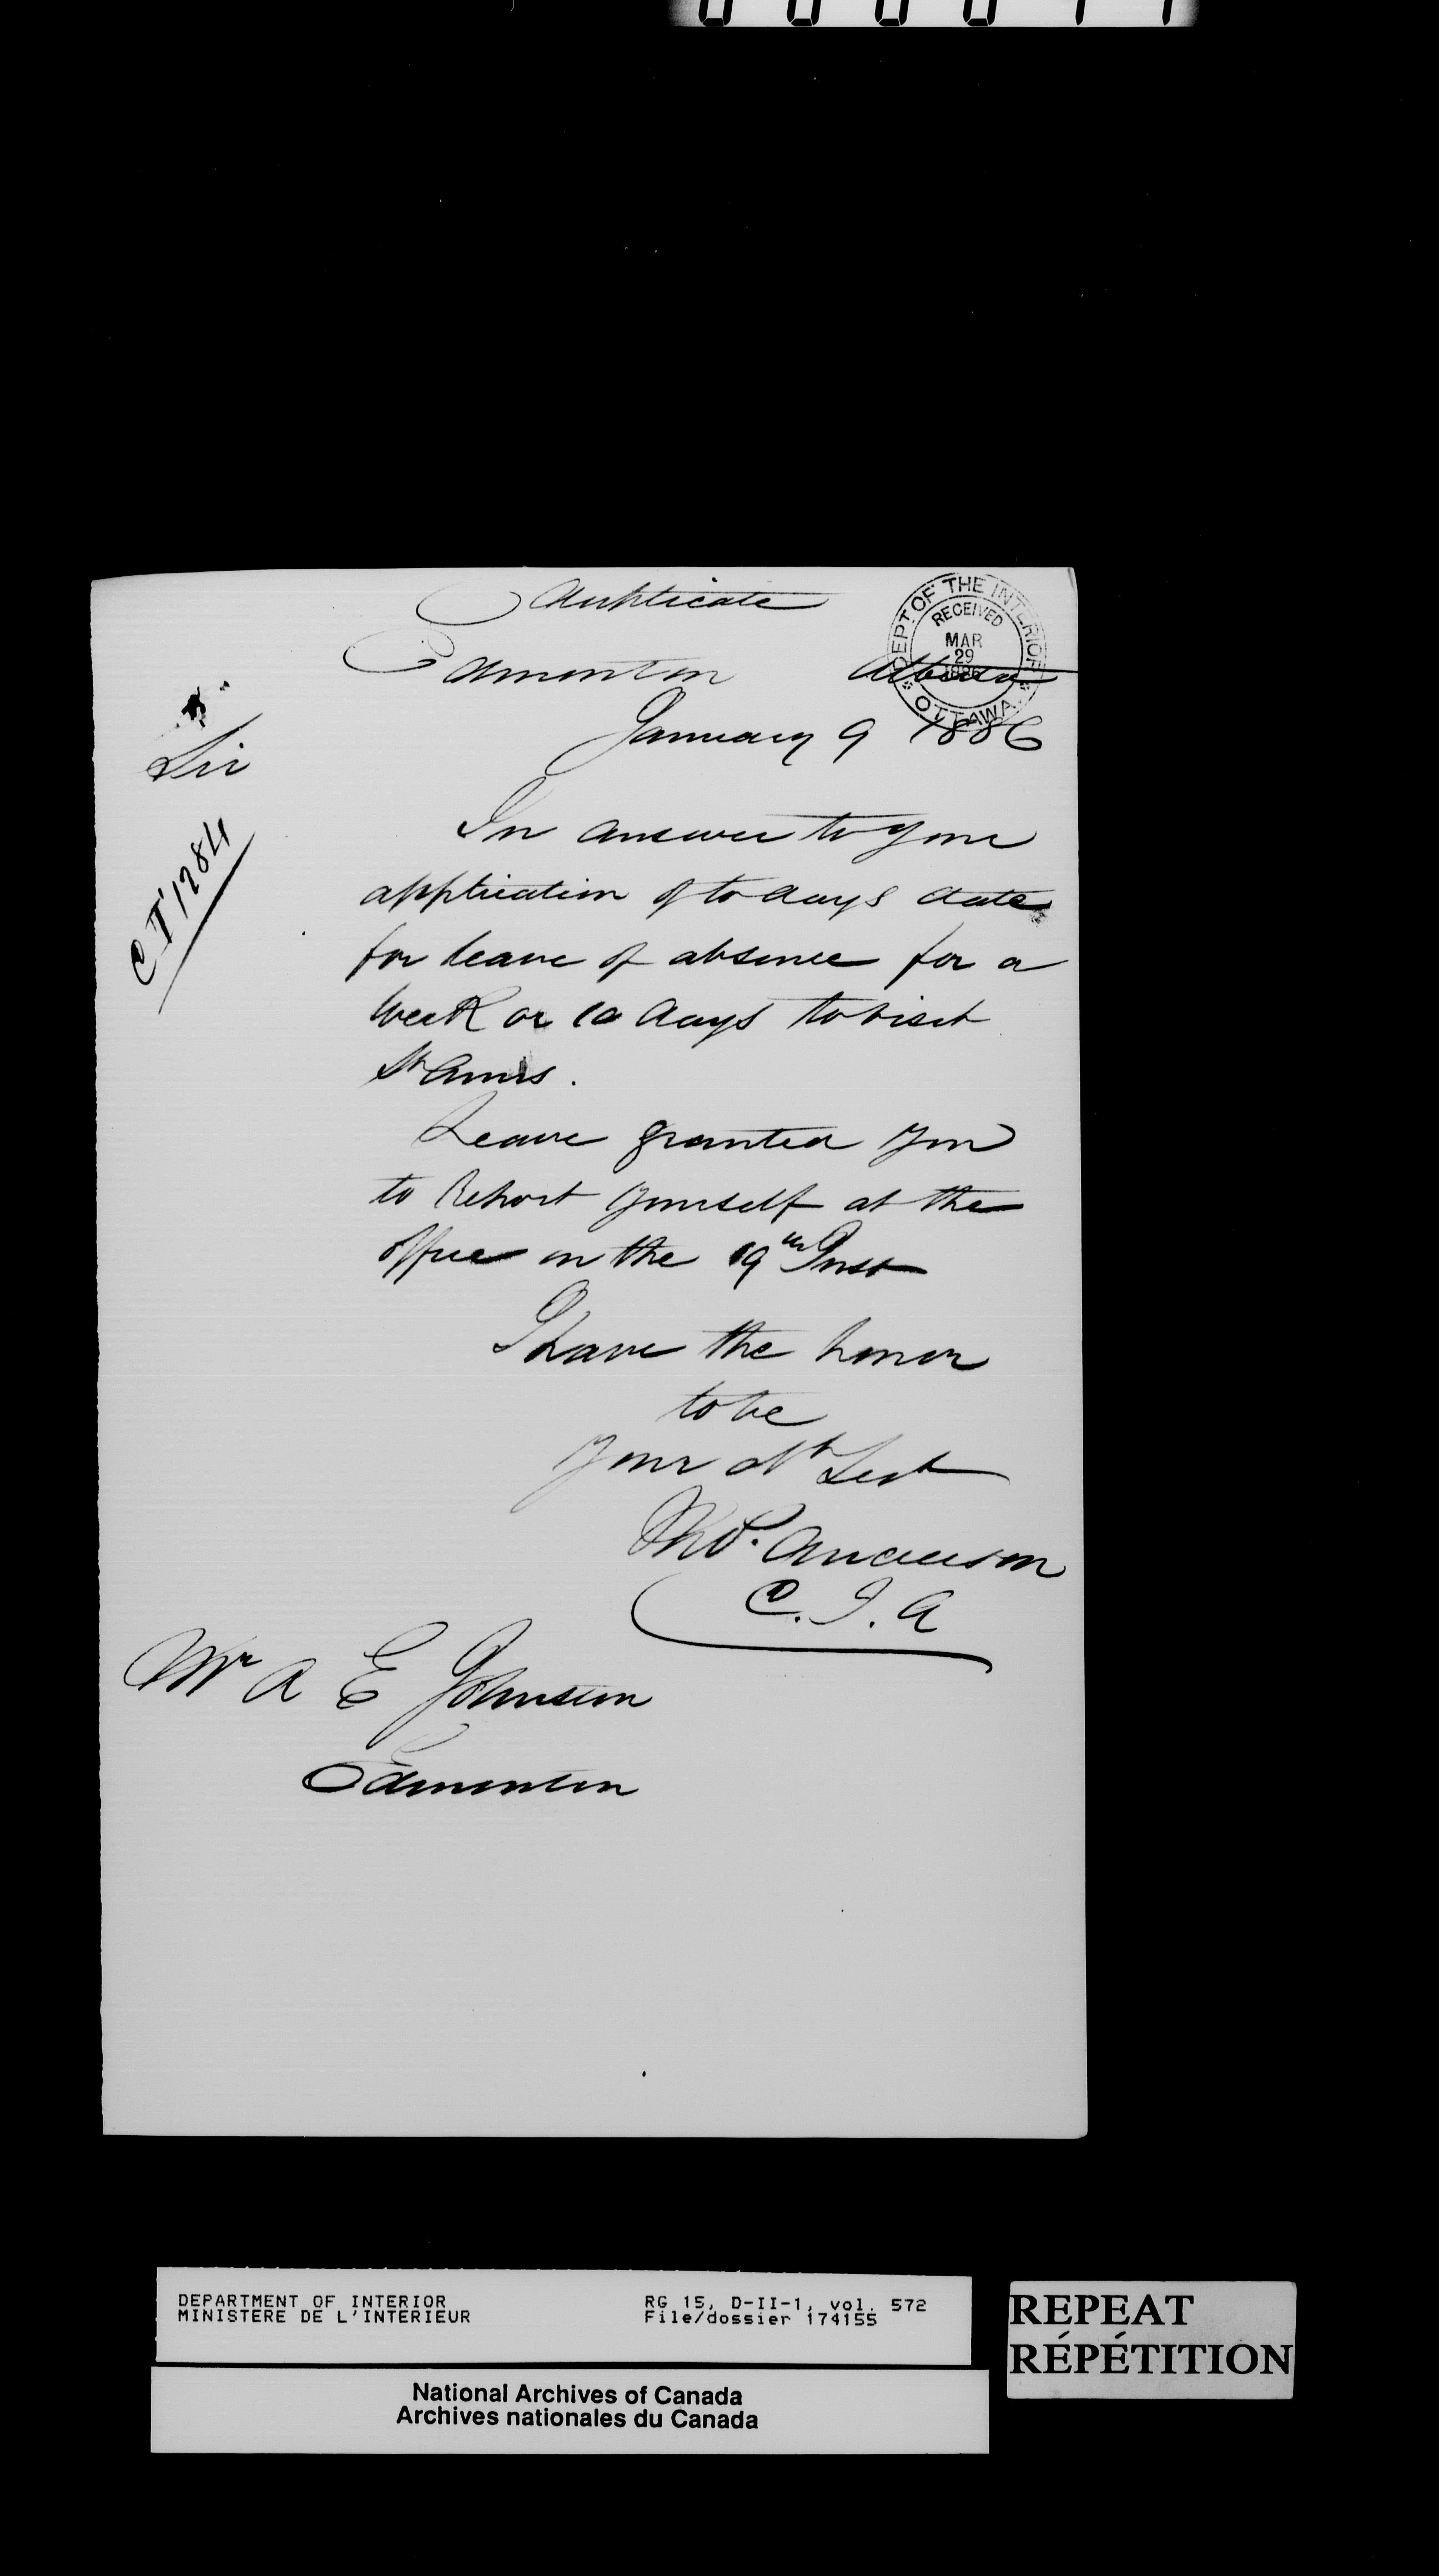 Duplicate
DEPT. OF THE INTERIOR
RECEIVED
MAR
29
1886
OTTAWA
Edmonton Alberta
January 9 1886
Sir
C I 1284
In answer to your
application of to days date
for leave of absence for a
week or 10 days to visit
St Anns.
Leave granted you
to Report yourself at the
office on the 19th Inst
I have the honor
to be
Your obt Sevt
Thos. Anderson
C. I. A
Mr A E Johnson
Edmonton
DEPARTMENT OF INTERIOR
MINISTERE DE L'INTERIEUR
RG 15, D-II-1, vol. 572
File/dossier 174155
REPEAT
RÉPÉTITION
National Archives of Canada
Archives nationales du Canada